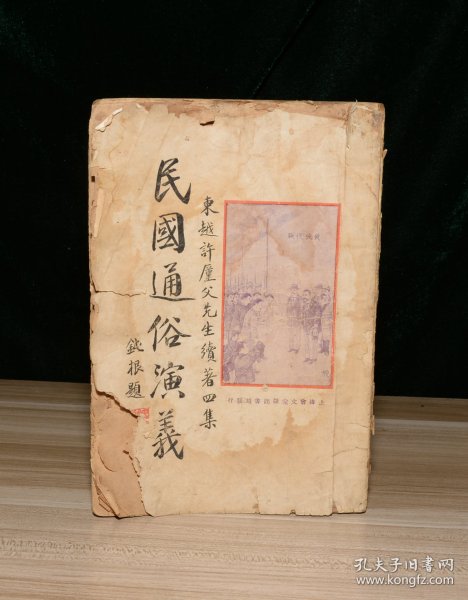 東越許廑父先生續著四集
民國通俗演義
鈍根題
上海會文堂新記書局發行
孔夫子旧书网
www.kongfz.com